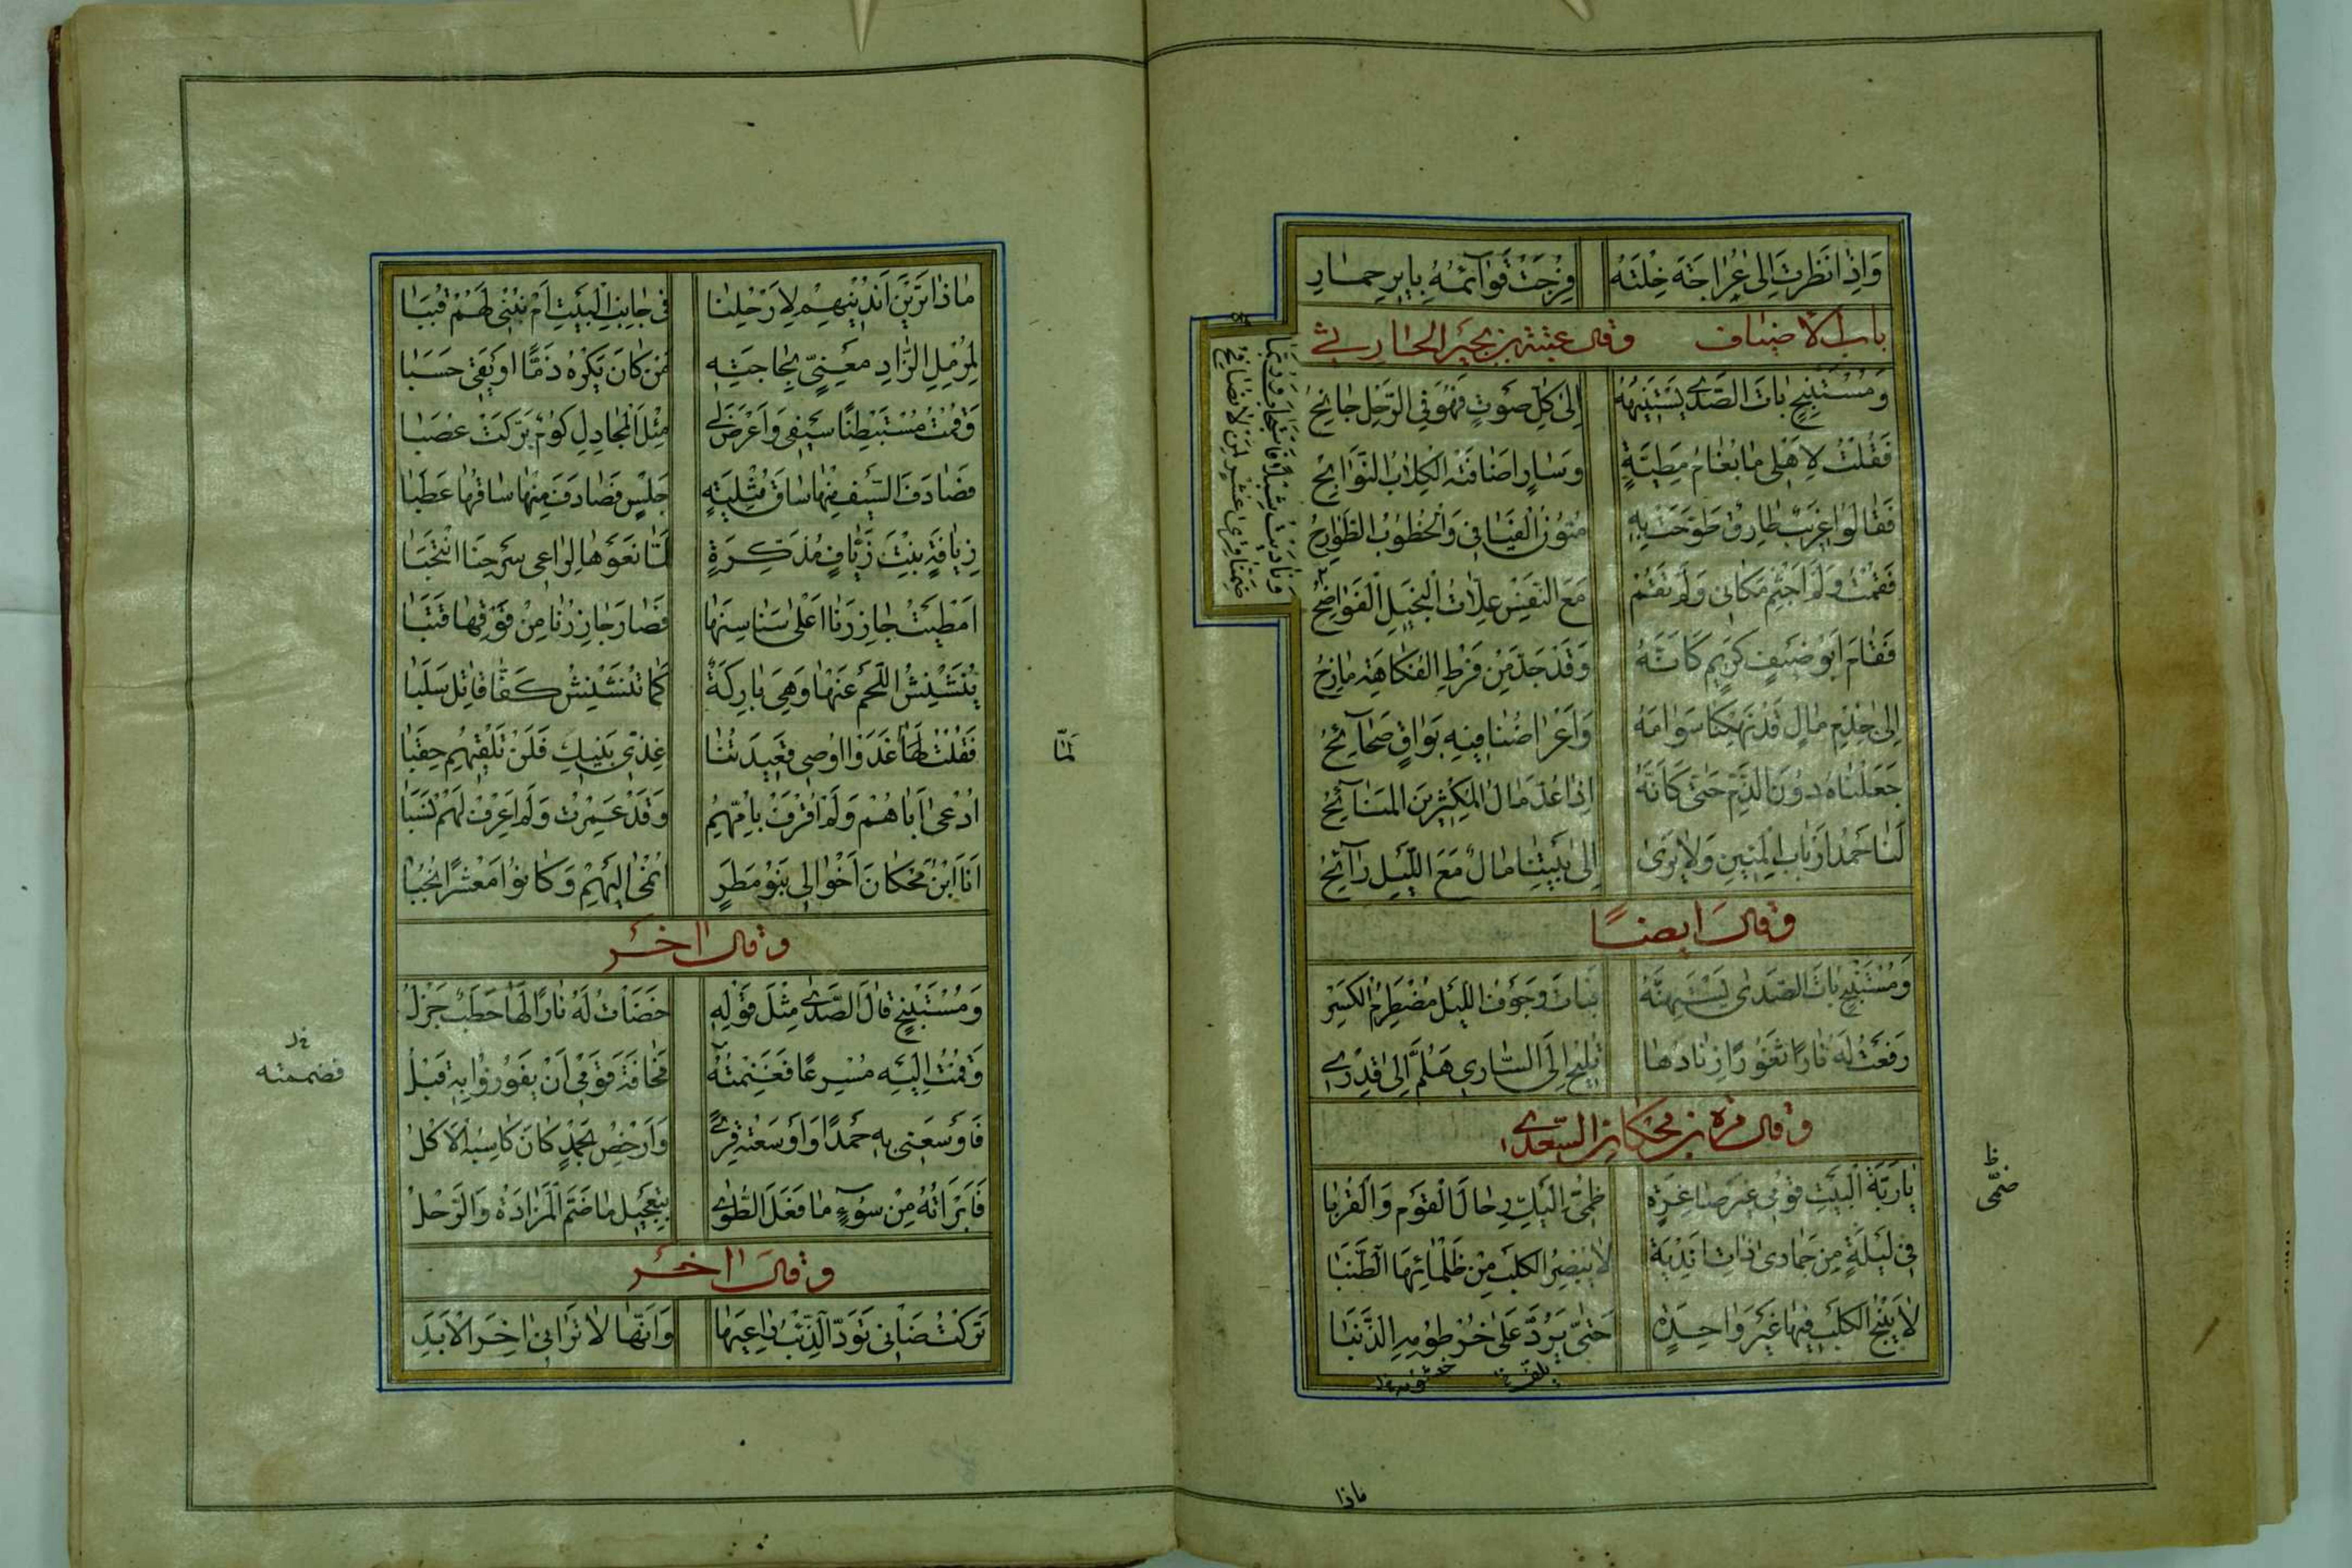 وَاِذَا نَظَرْتَ اِلىٰ عُرَاجَةَ خِلْتَهُ فُرِجَتْ قَوَآئمُهُ بِايرِ حِمارِ
بابُ الاَضيَاف وقال عتبة بن بجير الحارثي
وَمُسْتَنْبِحٍ بَاتَ الصَّدٰى يَسْتَتِيهُهُ اِلىٰ كُلِّ صَوتٍ فَهْوَ فِي الرَّحْلِ جَانِحُ
فَقُلْتُ لِاَهْلِي مَا بُغَامُ مَطِيَّةٍ وَسَارٍ اَضَافَتْهُ الكِلَابُ النَّوَابِحُ
فَقَالُوا غَرِيبٌ طَارِقٌ طَوَّحَتْ بِهِ مُتُونُ الْفَيَافِي وَالْخُطُوبُ الطَّوَارِحُ
فَقُمْتُ وَلَمْ اَجْثِمْ مَكَانِي وَلَمْ تَقُمْ مَعَ النَّفْسِ عِلَّاتُ الْبَخِيلِ الْفَوَاضِحُ
وَنَادَيْتُ شِبْلًا فَاسْتَجَابَ وَرُبَّمَا
ضَمِنَّا قِرىٰ عَشْرٍ لِمَنْ لَا نُصَافِحُ
فَقَامَ اَبُو ضَيْفٍ كَرِيمٍ كَاَنَّهُ وَقَدْ جَدَّ مِنْ فَرْطِ الفُكَاهَةِ مَازِحُ
اِلىٰ جِذْمِ مَالٍ قَدْ نَهِكْنَا سَوَامَهُ وَاَعْرَاضُنَا فِيهِ بَوَاقٍ صَحَآئِحُ
جَعَلْنَاهُ دُونَ الذَّمِّ حَتّىٰ كَاَنَّهُ اِذَا عُدَّ مَالُ المُكْثِرِينَ المَنَآئِحُ
لَنَا حَمْدُ اَرْبَابِ الْمِئِينَ وَلَا يُرىٰ اِلىٰ بَيْتِنَا مَالٌ مَعَ اللَّيْلِ رَآئِحُ
وقالَ ايضًا
وَمُسْتَنْبِحٍ بَاتَ الصَّدىٰ يَسْتَتِيهُهُ فَبَاتَ وَجَوْفُ اللَّيْلِ مُضْطَرِمُ الكَسْرِ
رَفَعْتُ لَهُ نَارًا ثَقُورًا زِنَادُهَا تُلِيحُ اِلَى السَّارِي هَلُمَّ اِلىٰ قِدْرِي
وقال مرة بن محكان السعدي
يَارَبَّةَ الْبَيْتِ قُومِي غَيْرَ صَاغِرَةٍ ضُمِّي اِلَيْكِ رِحَالَ الْقَوْمِ وَالْقُرُبَا
ظ
ضُمِّي
فِي لَيْلَةٍ مِنْ جُمَادىٰ ذَاتِ اَنْدِيَةٍ لَا يُبْصِرُ الكَلْبُ مِنْ ظَلْمَائِهَا الطُّنُبَا
لَا يَنْبَحُ الكَلْبُ فِيهَا غَيْرَ وَاحِدَةٍ حَتّىٰ يَرُدَّ عَلىٰ خُرْطُومِهِ الذَّنَبَا
يلف خ خيشومه خ
ماذا
مَاذَا تَرَيْنَ اَنُدْنِيهِمْ لِاَرْحُلِنَا فِي جَانِبِ الْبَيْتِ اَمْ نَبْنِي لَهُمْ قُبَبَا
لِمُرْمِلِ الزَّادِ مَعْنِيٍّ بِحَاجَتِهِ مَنْ كَانَ يَكْرَهُ ذَمًّا اَوْ يَقِي حَسَبَا
وَقُمْتُ مُسْتَبْطِنًا سَيْفِي وَاَعْرَضَ لِي مِثْلُ الْمَجَادِلِ كُومٌ بَرَّكَتْ عُصَبَا
فَصَادَفَ السَّيْفُ مِنْهَا سَاقَ مُتْلِيَةٍ جَلْسٍ فَصَادَفَ مِنْهَا سَاقُهَا عَطَبَا
زَيَّافَةٍ بِنْتِ زَيَّافٍ مُذَكَّرَةٍ لَمَّا نَعَوْهَا لِرَاعِي سَرْحِنَا انْتَحَبَا
اَمْطَيْتُ جَازِرَنَا اَعْلىٰ سَنَاسِنِهَا فَصَارَ جَازِرُنَا مِنْ فَوْقِهَا قَتَبَا
يُنَشْنِشُ اللَّحْمَ عَنْهَا وَهِيَ بَارِكَةٌ كَمَا تُنَشْنِشُ كَفَّا قَاتِلٍ سَلَبَا
فَقُلْتُ لَهَا غَدَوْا اُوصِي قَعِيدَتَنَا غَذِّي بَنِيكِ فَلَنْ تَلْقَيْهِمُ حِقَبَا
لَمَّا
اُدْعىٰ اَبَاهُمْ وَلَمْ اُقْرَفْ بِاُمِّهِمُ وَقَدْ عَمِرْتُ وَلَمْ اَعْرِفْ لَهُمْ نَسَبَا
اَنَا ابْنُ مَحْكَانَ اَخْوَالِي بَنُو مَطَرٍ اُنْمىٰ اِلَيْهِمْ وَكَانُوا مَعْشَرًا نُجُبَا
وقال اٰخر
وَمُسْتَنْبِحٍ قَالَ الصَّدىٰ مِثْلَ قَوْلِهِ حَضَأْتُ لَهُ نَارًا لَهَا حَطَبٌ جَزْلُ
وَقُمْتُ اِلَيْهِ مُسْرِعًا فَغَنِمْتُهُ مَخَافَةَ قَوْمِي اَنْ يَفُوزُوا بِهِ قَبْلُ
خ
فضممته
فَاَوْسَعَنِي بِهِ حَمْدًا وَاَوْسَعْتُهُ قِرىً وَاَرْخِصْ بِحَمْدٍ كَانَ كَاسِبَهُ الْاَكْلُ
فَاَبْرَاَتْهُ مِنْ سُوءٍ مَا فَعَلَ الطَّوىٰ بِتَعْجِيلِ مَا ضَمَّ الْمَزَادَةُ وَالرَّحْلُ
وقالَ اٰخر
تَرَكْتُ ضَانِي تَوَدُّ الذِّئْبَ رَاعِيَهَا وَاَنَّهَا لَا تَرَانِي اٰخِرَ الْاَبَدِ